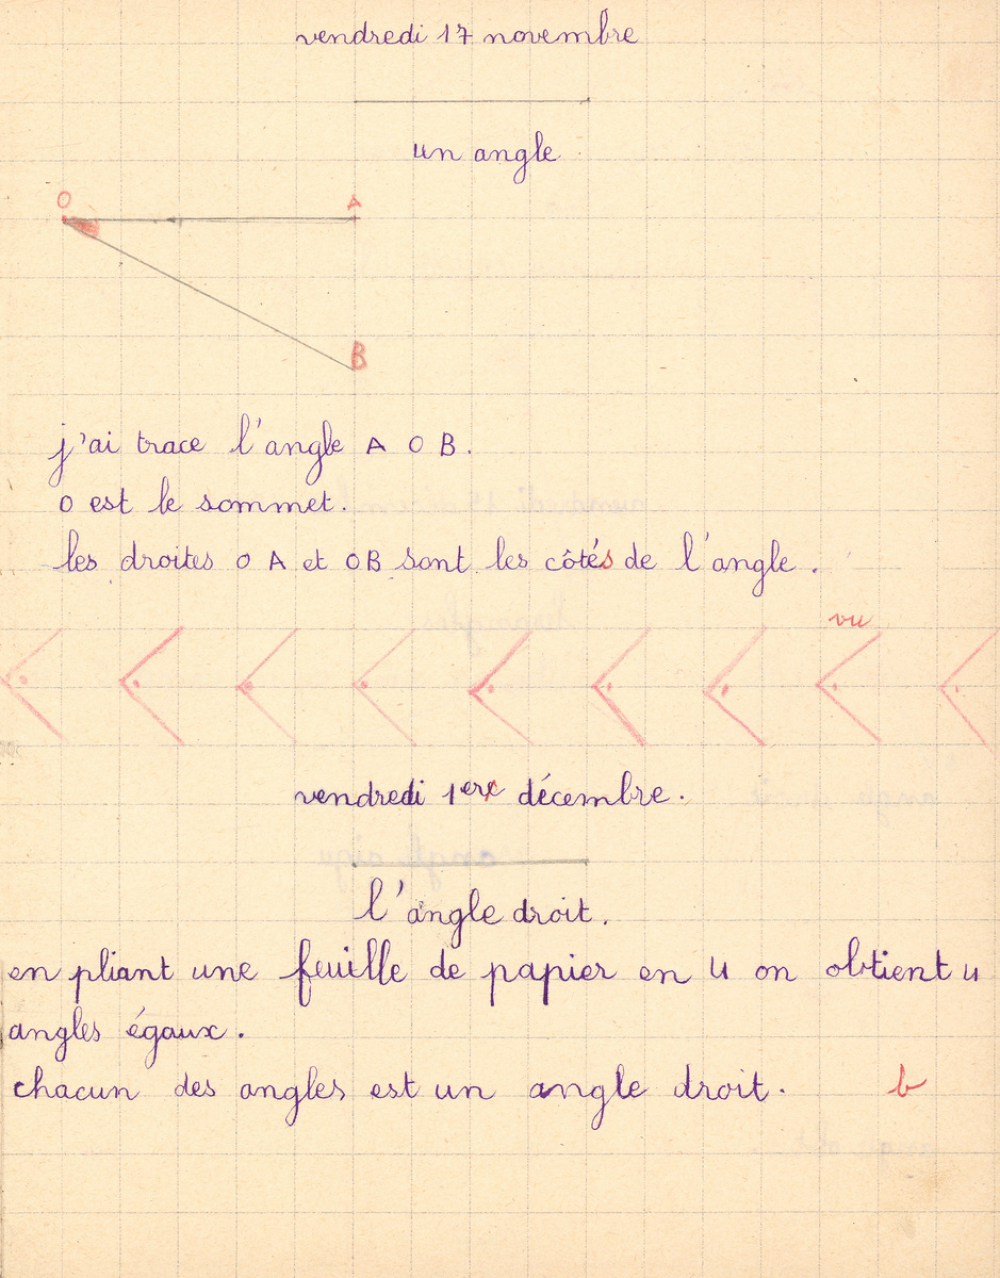 vendredi 17 novembre
un angle
O A
B
j'ai trace l'angle A O B.
O est le sommet.
les droites O A et OB sont les côtés de l'angle.
vu
vendredi 1ere décembre.
l'angle droit.
en pliant une feuille de papier en 4 on obtient 4
angles égaux.
chacun des angles est un angle droit. b